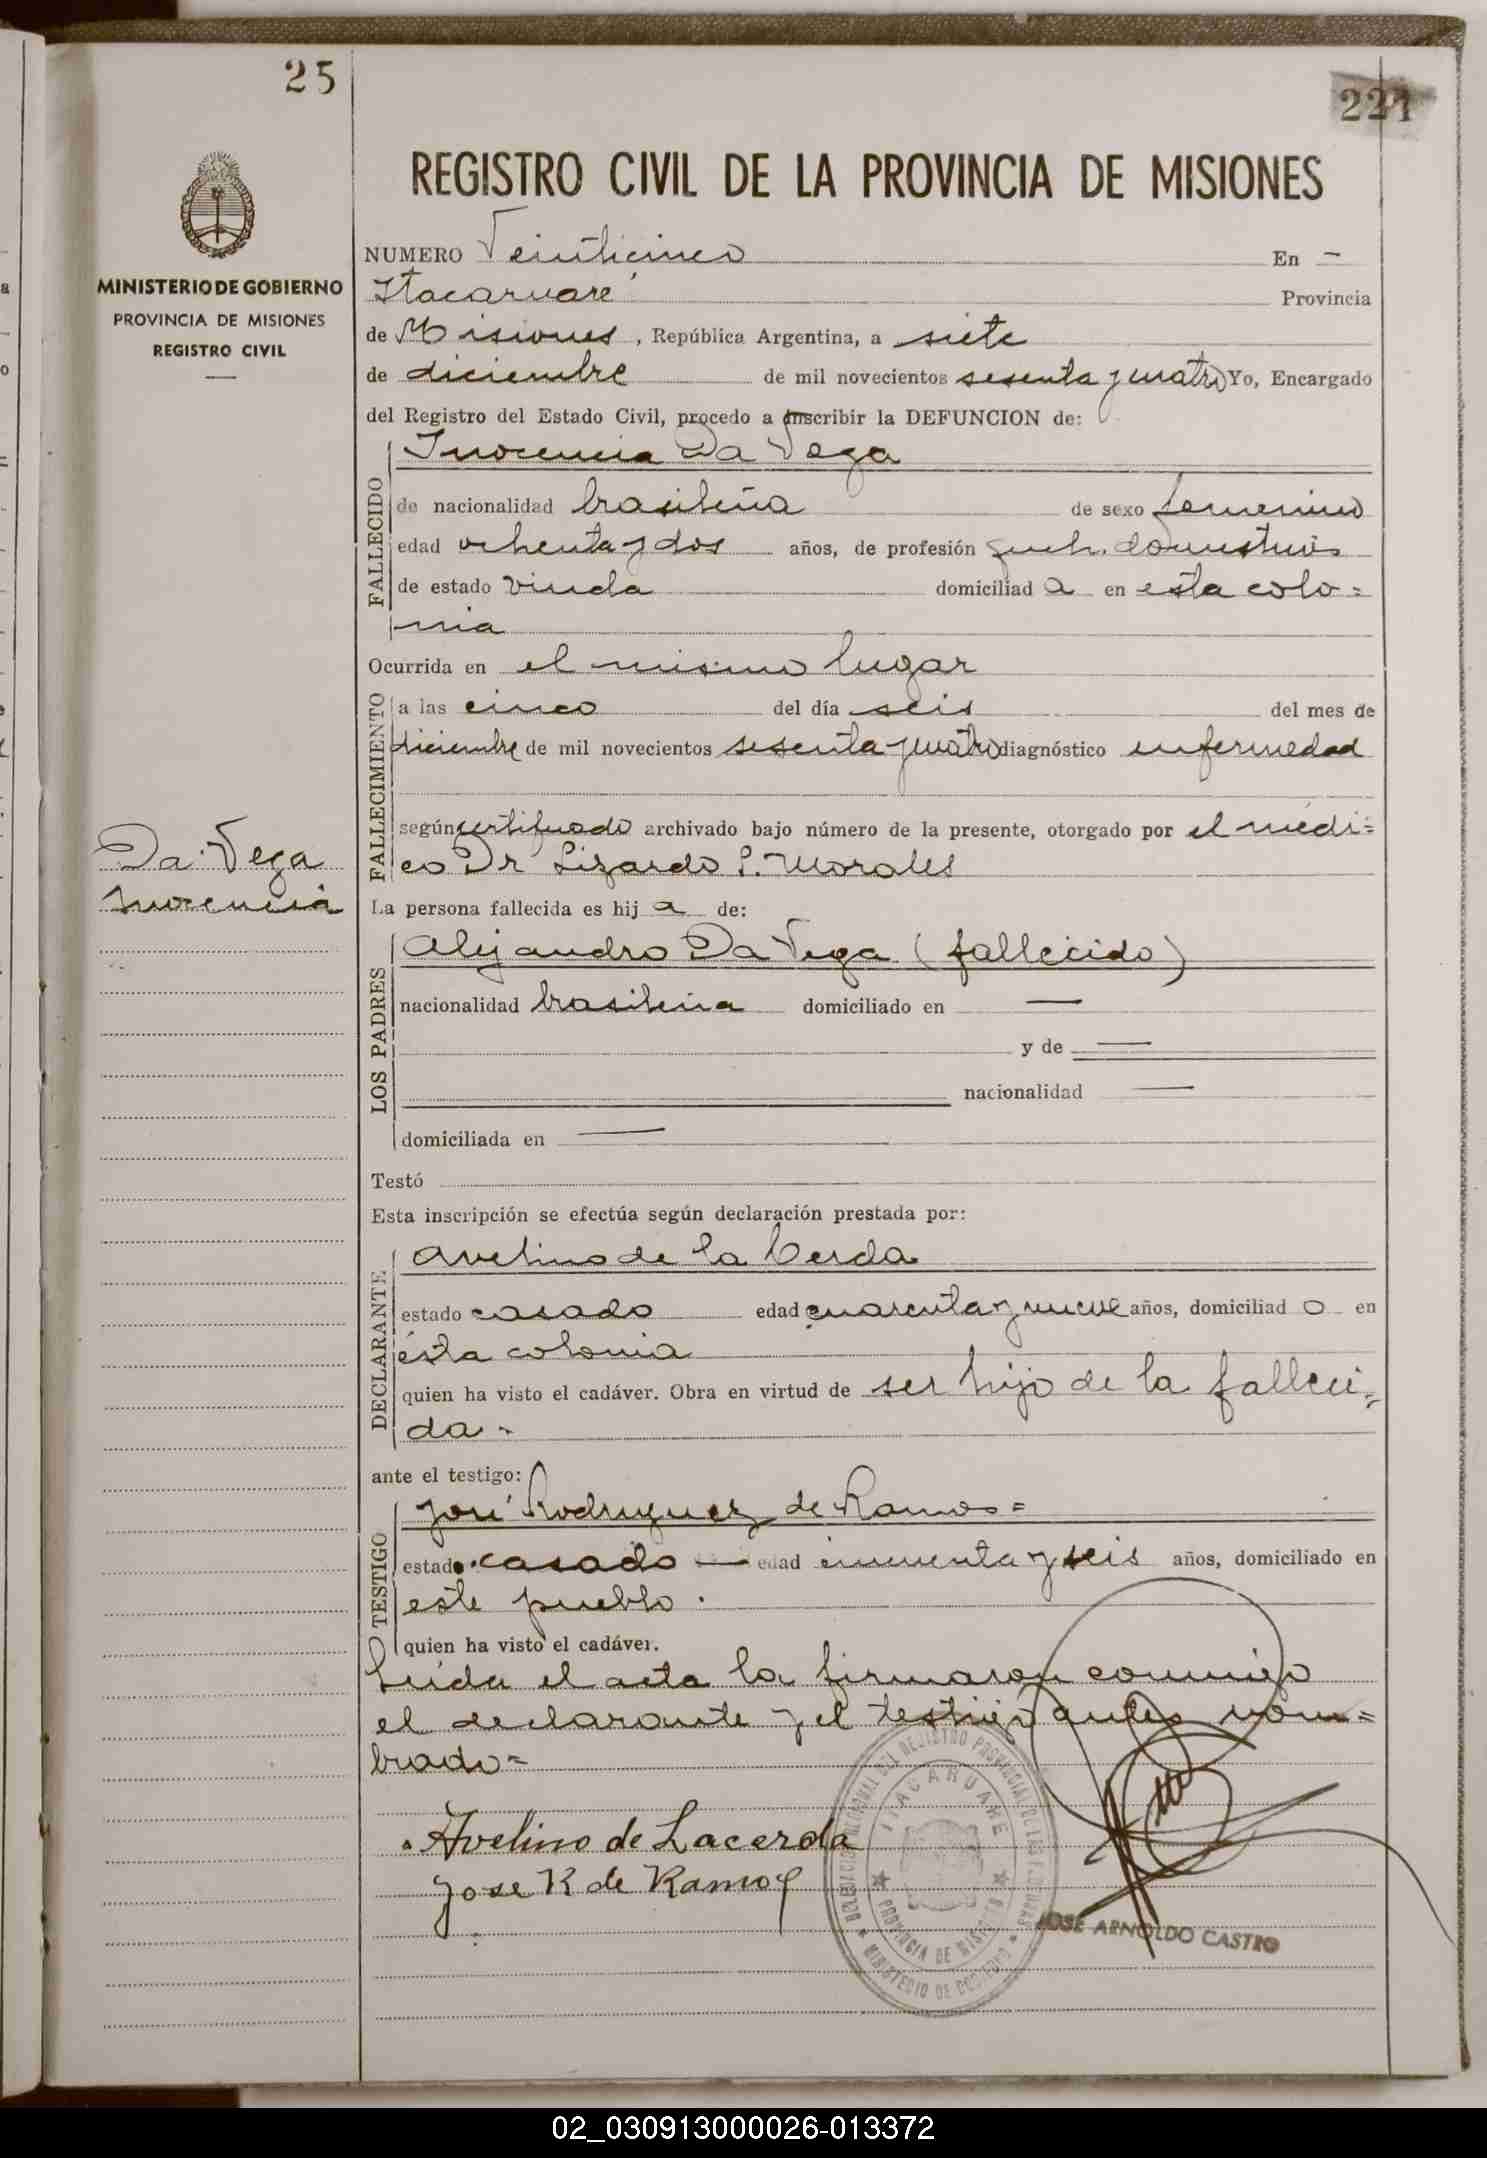 25
221
REGISTRO CIVIL DE LA PROVINCIA DE MISIONES
MINISTERIO DE GOBIERNO
PROVINCIA DE MISIONES
REGISTRO CIVIL
NUMERO Veinticinco En -
Itacaruaré Provincia
de Misiones, República Argentina, a siete
de diciembre de mil novecientos sesenta y cuatro Yo, Encargado
del Registro del Estado Civil, procedo a inscribir la DEFUNCION de:
Inocencia Da Vega
FALLECIDO
de nacionalidad brasileña de sexo femenino
edad ochenta y dos años, de profesión queh. domesticos
de estado viuda domiciliad a en esta colo=
nia
Ocurrida en el mismo lugar
FALLECIMIENTO
a las cinco del día seis del mes de
diciembre de mil novecientos sesenta y cuatro diagnóstico enfermedad
según certificado archivado bajo número de la presente, otorgado por el médi=
co Dr Lizardo S. Morales
Da Vega
Inocencia
La persona fallecida es hij a de:
LOS PADRES
Alejandro Da Vega (fallecido)
nacionalidad brasileña domiciliado en —
y de —
nacionalidad —
domiciliada en —
Testó
Esta inscripción se efectúa según declaración prestada por:
DECLARANTE
Avelino de la Cerda
estado casado edad cuarenta y nueve años, domiciliad o en
ésta colonia
quien ha visto el cadáver. Obra en virtud de ser hijo de la falleci=
da.-
ante el testigo:
TESTIGO
José Rodriguez de Ramos=
estado casado — edad cincuenta y seis años, domiciliado en
este pueblo.
quien ha visto el cadáver.
Leida el acta la firmaron conmigo
el declarante y el testigo antes nom=
brado=
Avelino de Lacerda
Jose R de Ramos
ITACARUARE
PROVINCIA DE MISIONES
MINISTERIO DE GOBIERNO
JOSE ARNOLDO CASTRO
02_030913000026-013372